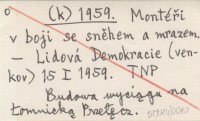 o (k) 1959. Montéři
v boji se sněhem a mrazem.
— Lidová Demokracie (ven-
kov) 15 I 1959. TNP
Budowa wyciągu na
Łomnicką Przełęcz.